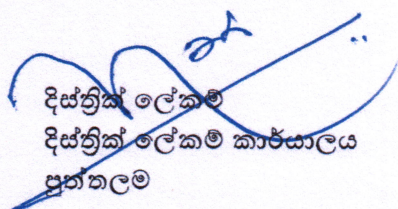 දිස්ත්‍රික් ලේකම්
දිස්ත්‍රික් ලේකම් කාර්යාලය
පුත්තලම